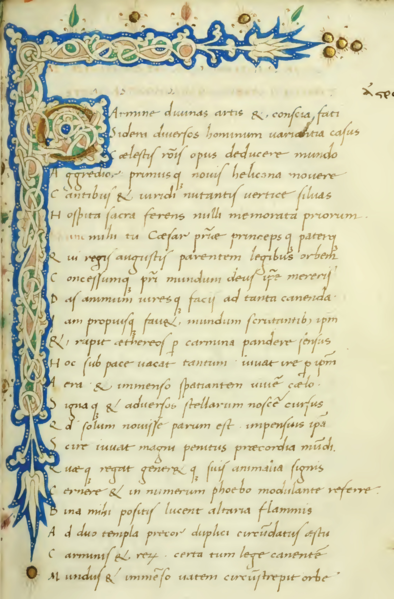 Carmine divinas artis &, conscia fati
Sidera diversos hominum variantia casus
Cælestis rõis opus deducere mundo
Aggredior primusq novis helicona movere
Cantibus & viridi nutantis vertice silvas
Hospita sacra ferens nulli memorata priorum
mihi tu Cæsar prĩæ princepsq pater q
Qui regis augustis parentem legibus orbem
Concessumq pri mundum deus ipẽ mereris
Das animum viresq facis ad tanta canenda
Iam propiusq favet, mundum scrutantib, ipm
&, cupit æthereos p carmina pandere sensus
Hoc sub pace vacat tantum. iuvat ire p ipm
Aera & immenso spatiantem vivẽ cælo.
Signaq & adversos stellarum noscẽ cursus
Qd solum novisse parum est. impensius ipa
Scire iuvat magni penitus præcordia mũdi.
Quæq regat generetq suis animalia signis
Cernere & in numerum phoebo modulante referre.
Bina mihi positis lucent altaria flammis
Ad duo templa precor duplici circũdatus æstu
Carminis &, rerũ. certa cum lege canentẽ
Mundus & immẽso vatem circũstrepit orbe